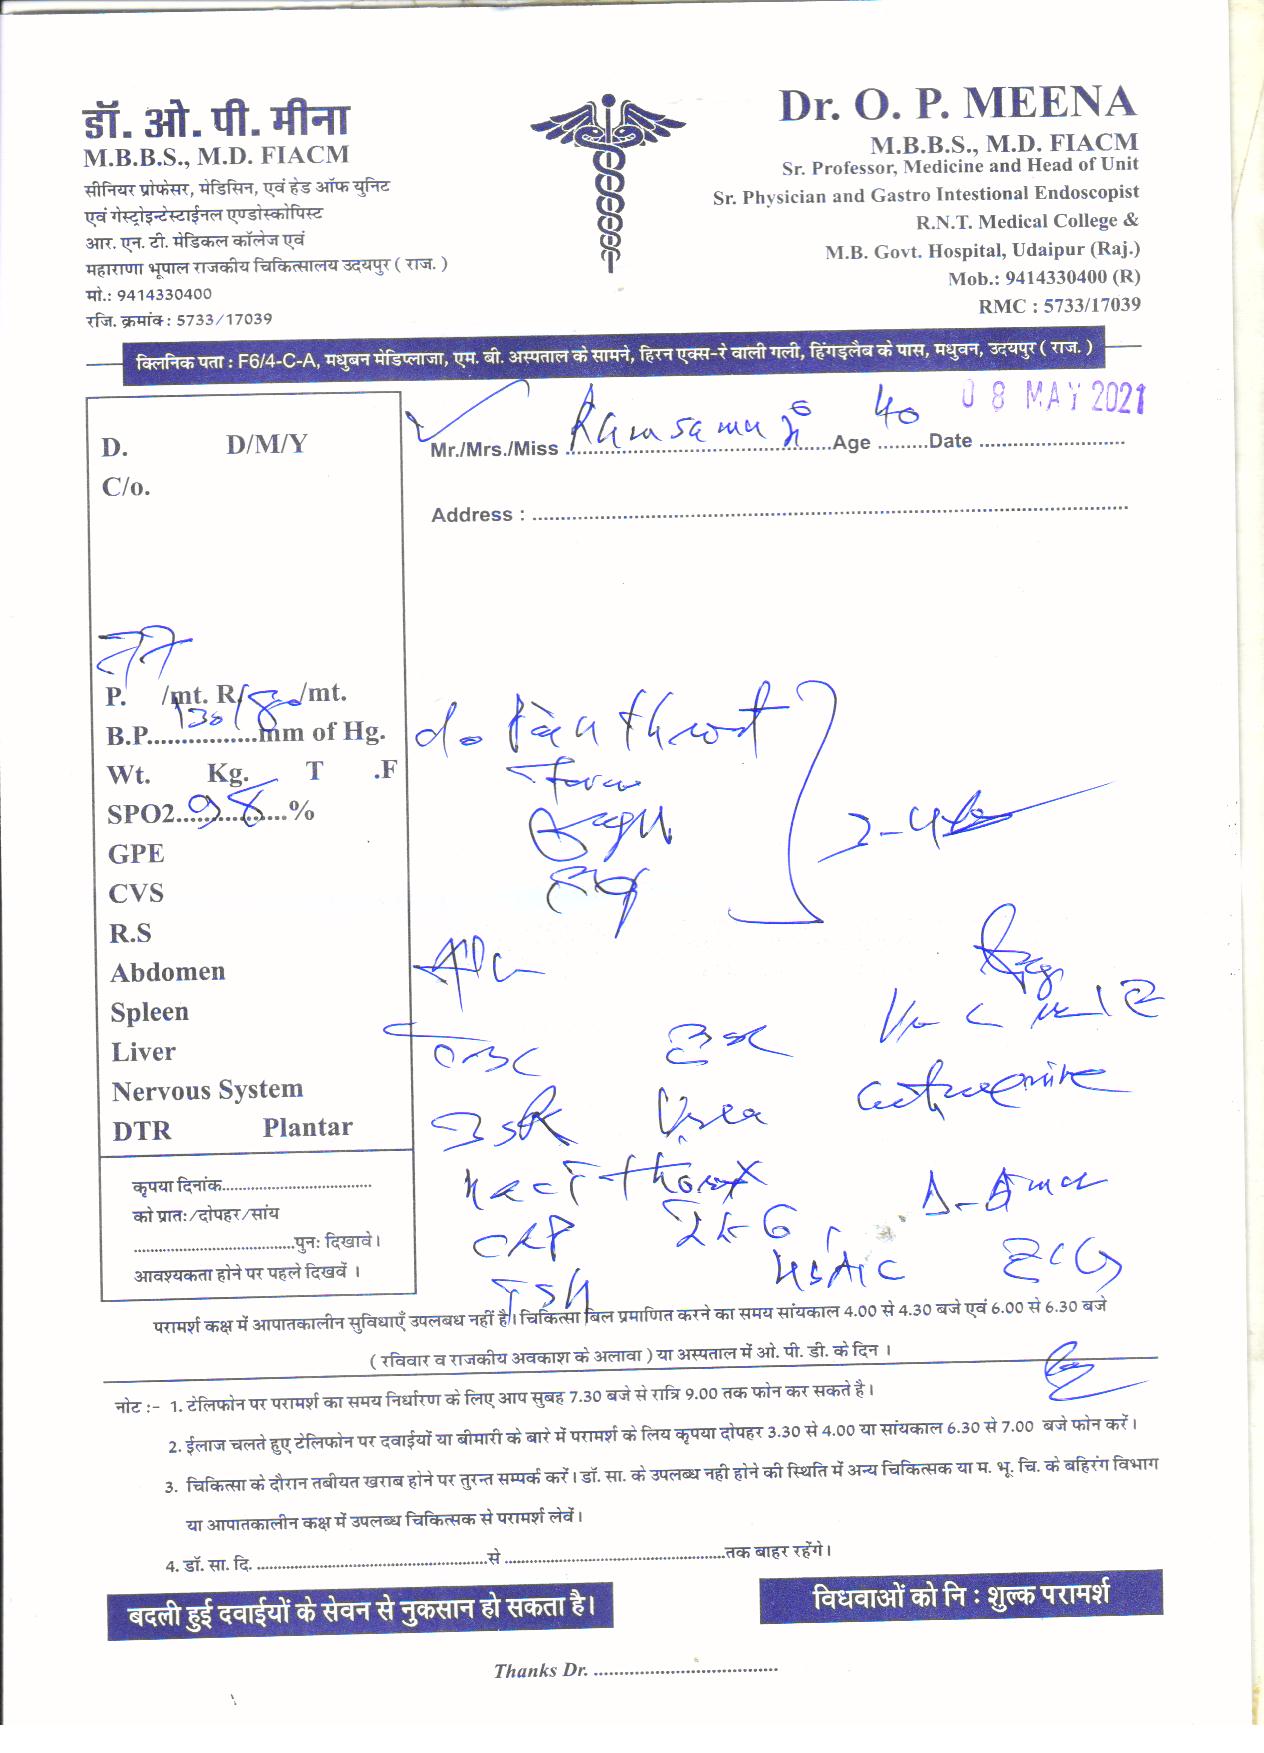 डॉ. ओ. पी. मीना
M.B.B.S., M.D. FIACM
सीनियर प्रोफेसर, मेडिसिन, एवं हेड ऑफ युनिट
एवं गेस्ट्रोइन्टेस्टाईनल एण्डोस्कोपिस्ट
आर. एन. टी. मेडिकल कॉलेज एवं
महाराणा भूपाल राजकीय चिकित्सालय उदयपुर ( राज. )
मो.: 9414330400
रजि. क्रमांक : 5733/17039
Dr. O. P. MEENA
M.B.B.S., M.D. FIACM
Sr. Professor, Medicine and Head of Unit
Sr. Physician and Gastro Intestional Endoscopist
R.N.T. Medical College &
M.B. Govt. Hospital, Udaipur (Raj.)
Mob.: 9414330400 (R)
RMC : 5733/17039
क्लिनिक पता : F6/4-C-A, मधुबन मेडिप्लाजा, एम. बी. अस्पताल के सामने, हिरन एक्स-रे वाली गली, हिंगड़लैब के पास, मधुवन, उदयपुर ( राज. )
08 MAY 2021
Mr./Mrs./Miss ........ Age 40 Date ........
Address : ........
D. D/M/Y
C/o.
77
P. /mt. R/ /mt.
B.P. 130/80 mm of Hg.
Wt. Kg. T .F
SPO2 98 %
GPE
CVS
R.S
Abdomen
Spleen
Liver
Nervous System
DTR Plantar
कृपया दिनांक........
को प्रातः/दोपहर/सांय
........पुनः दिखावे।
आवश्यकता होने पर पहले दिखवें ।
Pain throat
CBC
ESR Urea
CRP
TSH HbA1C ECG
परामर्श कक्ष में आपातकालीन सुविधाएँ उपलब्ध नहीं है। चिकित्सा बिल प्रमाणित करने का समय सांयकाल 4.00 से 4.30 बजे एवं 6.00 से 6.30 बजे
( रविवार व राजकीय अवकाश के अलावा ) या अस्पताल में ओ. पी. डी. के दिन ।
नोट :- 1. टेलिफोन पर परामर्श का समय निर्धारण के लिए आप सुबह 7.30 बजे से रात्रि 9.00 तक फोन कर सकते है।
2. ईलाज चलते हुए टेलिफोन पर दवाईयों या बीमारी के बारे में परामर्श के लिय कृपया दोपहर 3.30 से 4.00 या सांयकाल 6.30 से 7.00 बजे फोन करें।
3. चिकित्सा के दौरान तबीयत खराब होने पर तुरन्त सम्पर्क करें। डॉ. सा. के उपलब्ध नही होने की स्थिति में अन्य चिकित्सक या म. भू. चि. के बहिरंग विभाग
या आपातकालीन कक्ष में उपलब्ध चिकित्सक से परामर्श लेवें।
4. डॉ. सा. दि. ........से ........तक बाहर रहेंगे।
बदली हुई दवाईयों के सेवन से नुकसान हो सकता है।
विधवाओं को नि : शुल्क परामर्श
Thanks Dr. ........